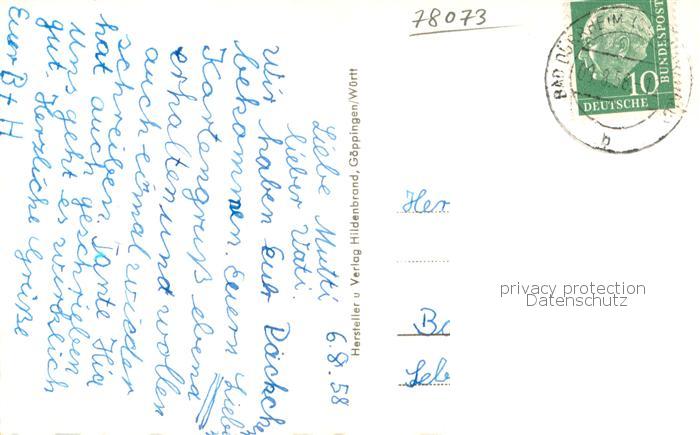 78073
Liebe Mutti
lieber Vati. 6.8.58
Wir haben Eur Päckche
bekommen. Euern Liebe
Kartengruß ebend
erhalten und wollen
auch einmal wieder
schreiben. Tante Hia
hat auch geschrieben
uns geht es wirklich
gut. Herzliche Grüße
Euer B + H
Hersteller u Verlag Hildenbrand, Göppingen/Württ
BAD DÜ HEIM
DEUTSCHE
BUNDESPOST
10
b
Her
privacy protection
Datenschutz
Be
Leb